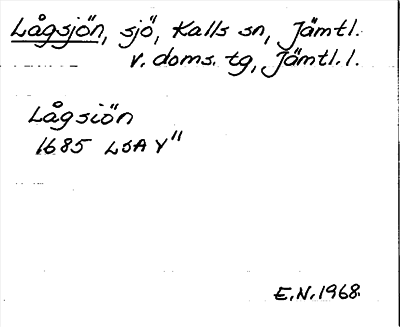 Lågsjön, sjö, Kalls sn, Jämtl.
v. doms. tg, Jämtl. l.
Lågsiön
1685 LSA Y"
E.N. 1968.